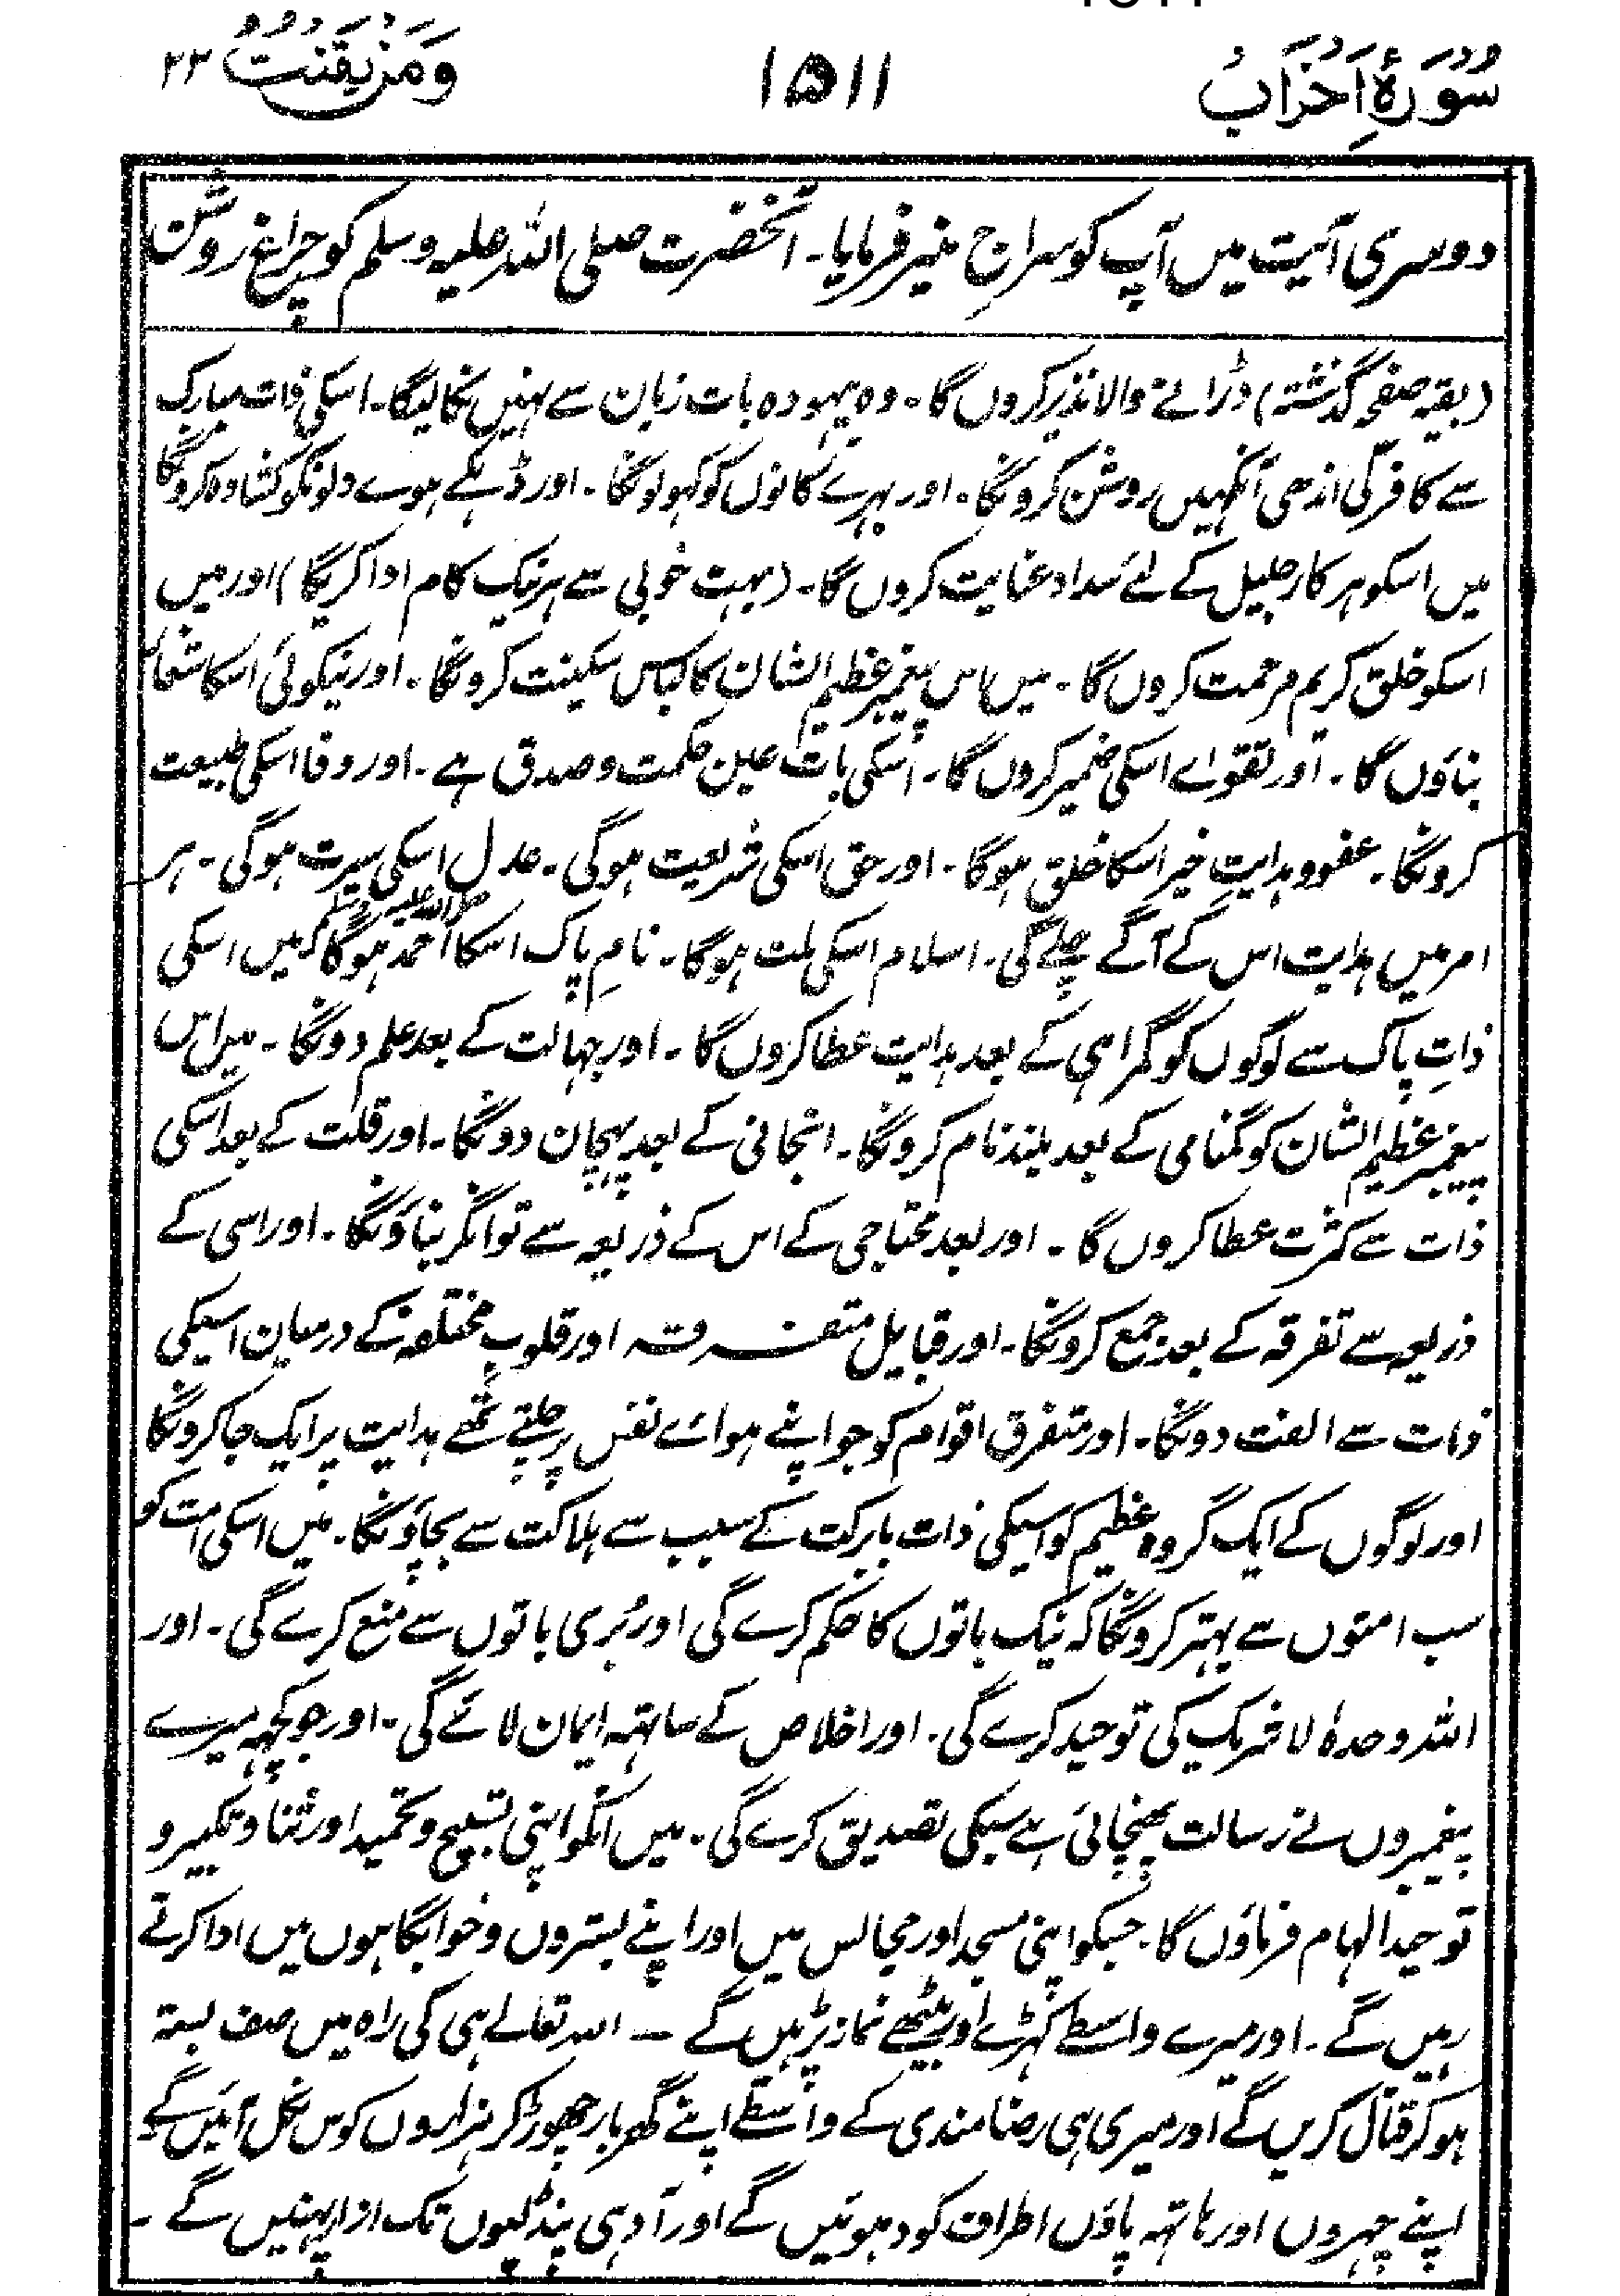 سُورَۂِ اَحْزَابُ
۱۵۱۱
وَمَنْ يَقْنُتْ ۲۲
دوسری آیت میں آپ کو سراجِ منیر فرمایا۔ آنحضرت صلی اللہ علیہ وسلم کو چراغ روشن
(بقیہ صفحہ گذشتہ) ڈرانے والا نذیر کروں گا۔ وہ بیہودہ بات زبان سے نہیں نکالیگا۔ اسکی ذات مبارک
سے کافر کی اندھی آنکہیں روشن کرونگا۔ اور بہرے کانوں کو کہولونگا۔ اور ڈہکے ہوے دلونکو کشادہ کرونگا
میں اسکو ہر کار جلیل کے لئے سداد عنایت کروں گا۔ (بہت خوبی سے ہر نیک کام ادا کریگا) اور میں
اسکو خلق کریم مرحمت کروں گا۔ میں اس پیغمبر عظیم الشان کا لباس سکینت کرونگا۔ اور نیکوئی اسکا شعار
بناؤں گا۔ اور تقواے اسکی ضمیر کروں گا۔ اسکی بات عین حکمت و صدق ہے۔ اور وفا اسکی طبیعت
کرونگا۔ عفو و ہدایت خیر اسکا خلق ہوگا۔ اور حق اسکی شریعت ہوگی۔ عدل اسکی سیرت ہوگی۔ ہر
امر میں ہدایت اس کے آگے چلے گی۔ اسلام اسکی ملت ہوگا۔ نامِ پاک اسکا احمد صلی اللہ علیہ وسلم ہوگا کہ میں اسکی
ذاتِ پاک سے لوگوں کو گمراہی کے بعد ہدایت عطا کروں گا۔ اور جہالت کے بعد علم دونگا۔ میں اس
پیغمبر عظیم الشان کو گمنامی کے بعد بلند نام کرونگا۔ انجانی کے بعد پہچان دونگا۔ اور قلت کے بعد اسکی
ذات سے کثرت عطا کروں گا۔ اور بعد محتاجی کے اس کے ذریعہ سے توانگر بناؤنگا۔ اور اسی کے
ذریعہ سے تفرقہ کے بعد جمع کرونگا۔ اور قبایل متفرقہ اور قلوبِ مختلفہ کے درمیان اسیکی
ذات سے الفت دونگا۔ اور متفرق اقوام کو جو اپنے ہوائے نفس پر چلتے تھے ہدایت پر ایک جا کرونگا
اور لوگوں کے ایک گروہ عظیم کو اسیکی ذات بابرکت کے سبب سے ہلاکت سے بچاؤنگا۔ میں اسکی امت کو
سب امتوں سے بہتر کرونگا کہ نیک باتوں کا حکم کرے گی اور بُری باتوں سے منع کرے گی۔ اور
اللہ وحدہٗ لاشریک کی توحید کرے گی۔ اور اخلاص کے ساتہہ ایمان لائے گی۔ اور جو کچہہ میرے
پیغمبروں نے رسالت پہنچائی ہے سبکی تصدیق کرے گی۔ میں انکو اپنی تسبیح و تحمید اور ثنا و تکبیر و
توحید الہام فرماؤں گا۔ جسکو اپنی مسجد اور مجالس میں اور اپنے بستروں و خوابگاہوں میں ادا کرتے
رہیں گے۔ اور میرے واسطے کہڑے اور بیٹھے نماز پڑہیں گے ۔ اللہ تعالے ہی کی راہ میں صف بستہ
ہو کر قتال کریں گے اور میری ہی رضامندی کے واسطے اپنے گھر بار چھوڑ کر ہزاروں کوس نکل آئیں گے
اپنے چہروں اور ہاتہہ پاؤں اطراف کو دہوئیں گے اور آدہی پنڈلیوں تک ازار پہنیں گے ۔